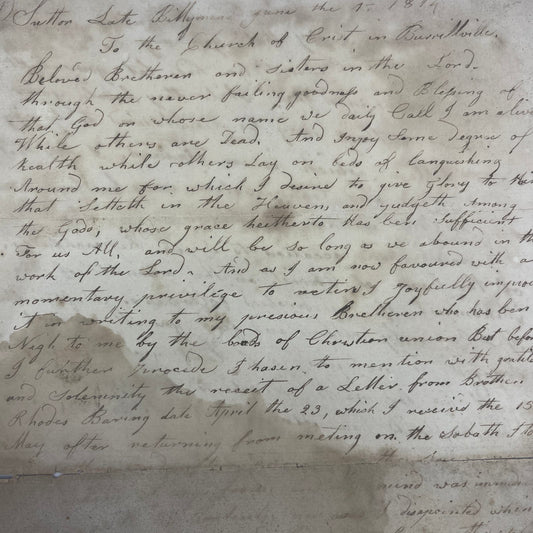 Sutton Late Billymead June the 1st 1814
To the Church of Crist in Burrillville.
Beloved Bretheren and sisters in the Lord.
through the never failing goodness and Blesing of
that God on whose name we daily Call I am alive
While others are Dead. And Injoy Some degree of
health while others Lay on beds of languishing
Around me for which I desire to give Glory to Him
that Setteth in the Heavens, and judgeth Among
the Gods; whose grace heitherto Has ben Sufficient
For us All, and will be so long as we abound in the
work of the Lord. And as I am now favoured with a
momentary privilege to retire, I Joyfully improve
it in writing to my precious Bretheren who has ben
Nigh to me by the bands of Christion union But before
I further procede I hasen to mention with gratitude
and Solemnity the receit of a Letter from Brother
Rhodes Baring date April the 23, which I receivd the 15
May after returning from meting on the Sabath I to
mind was
disapointed when